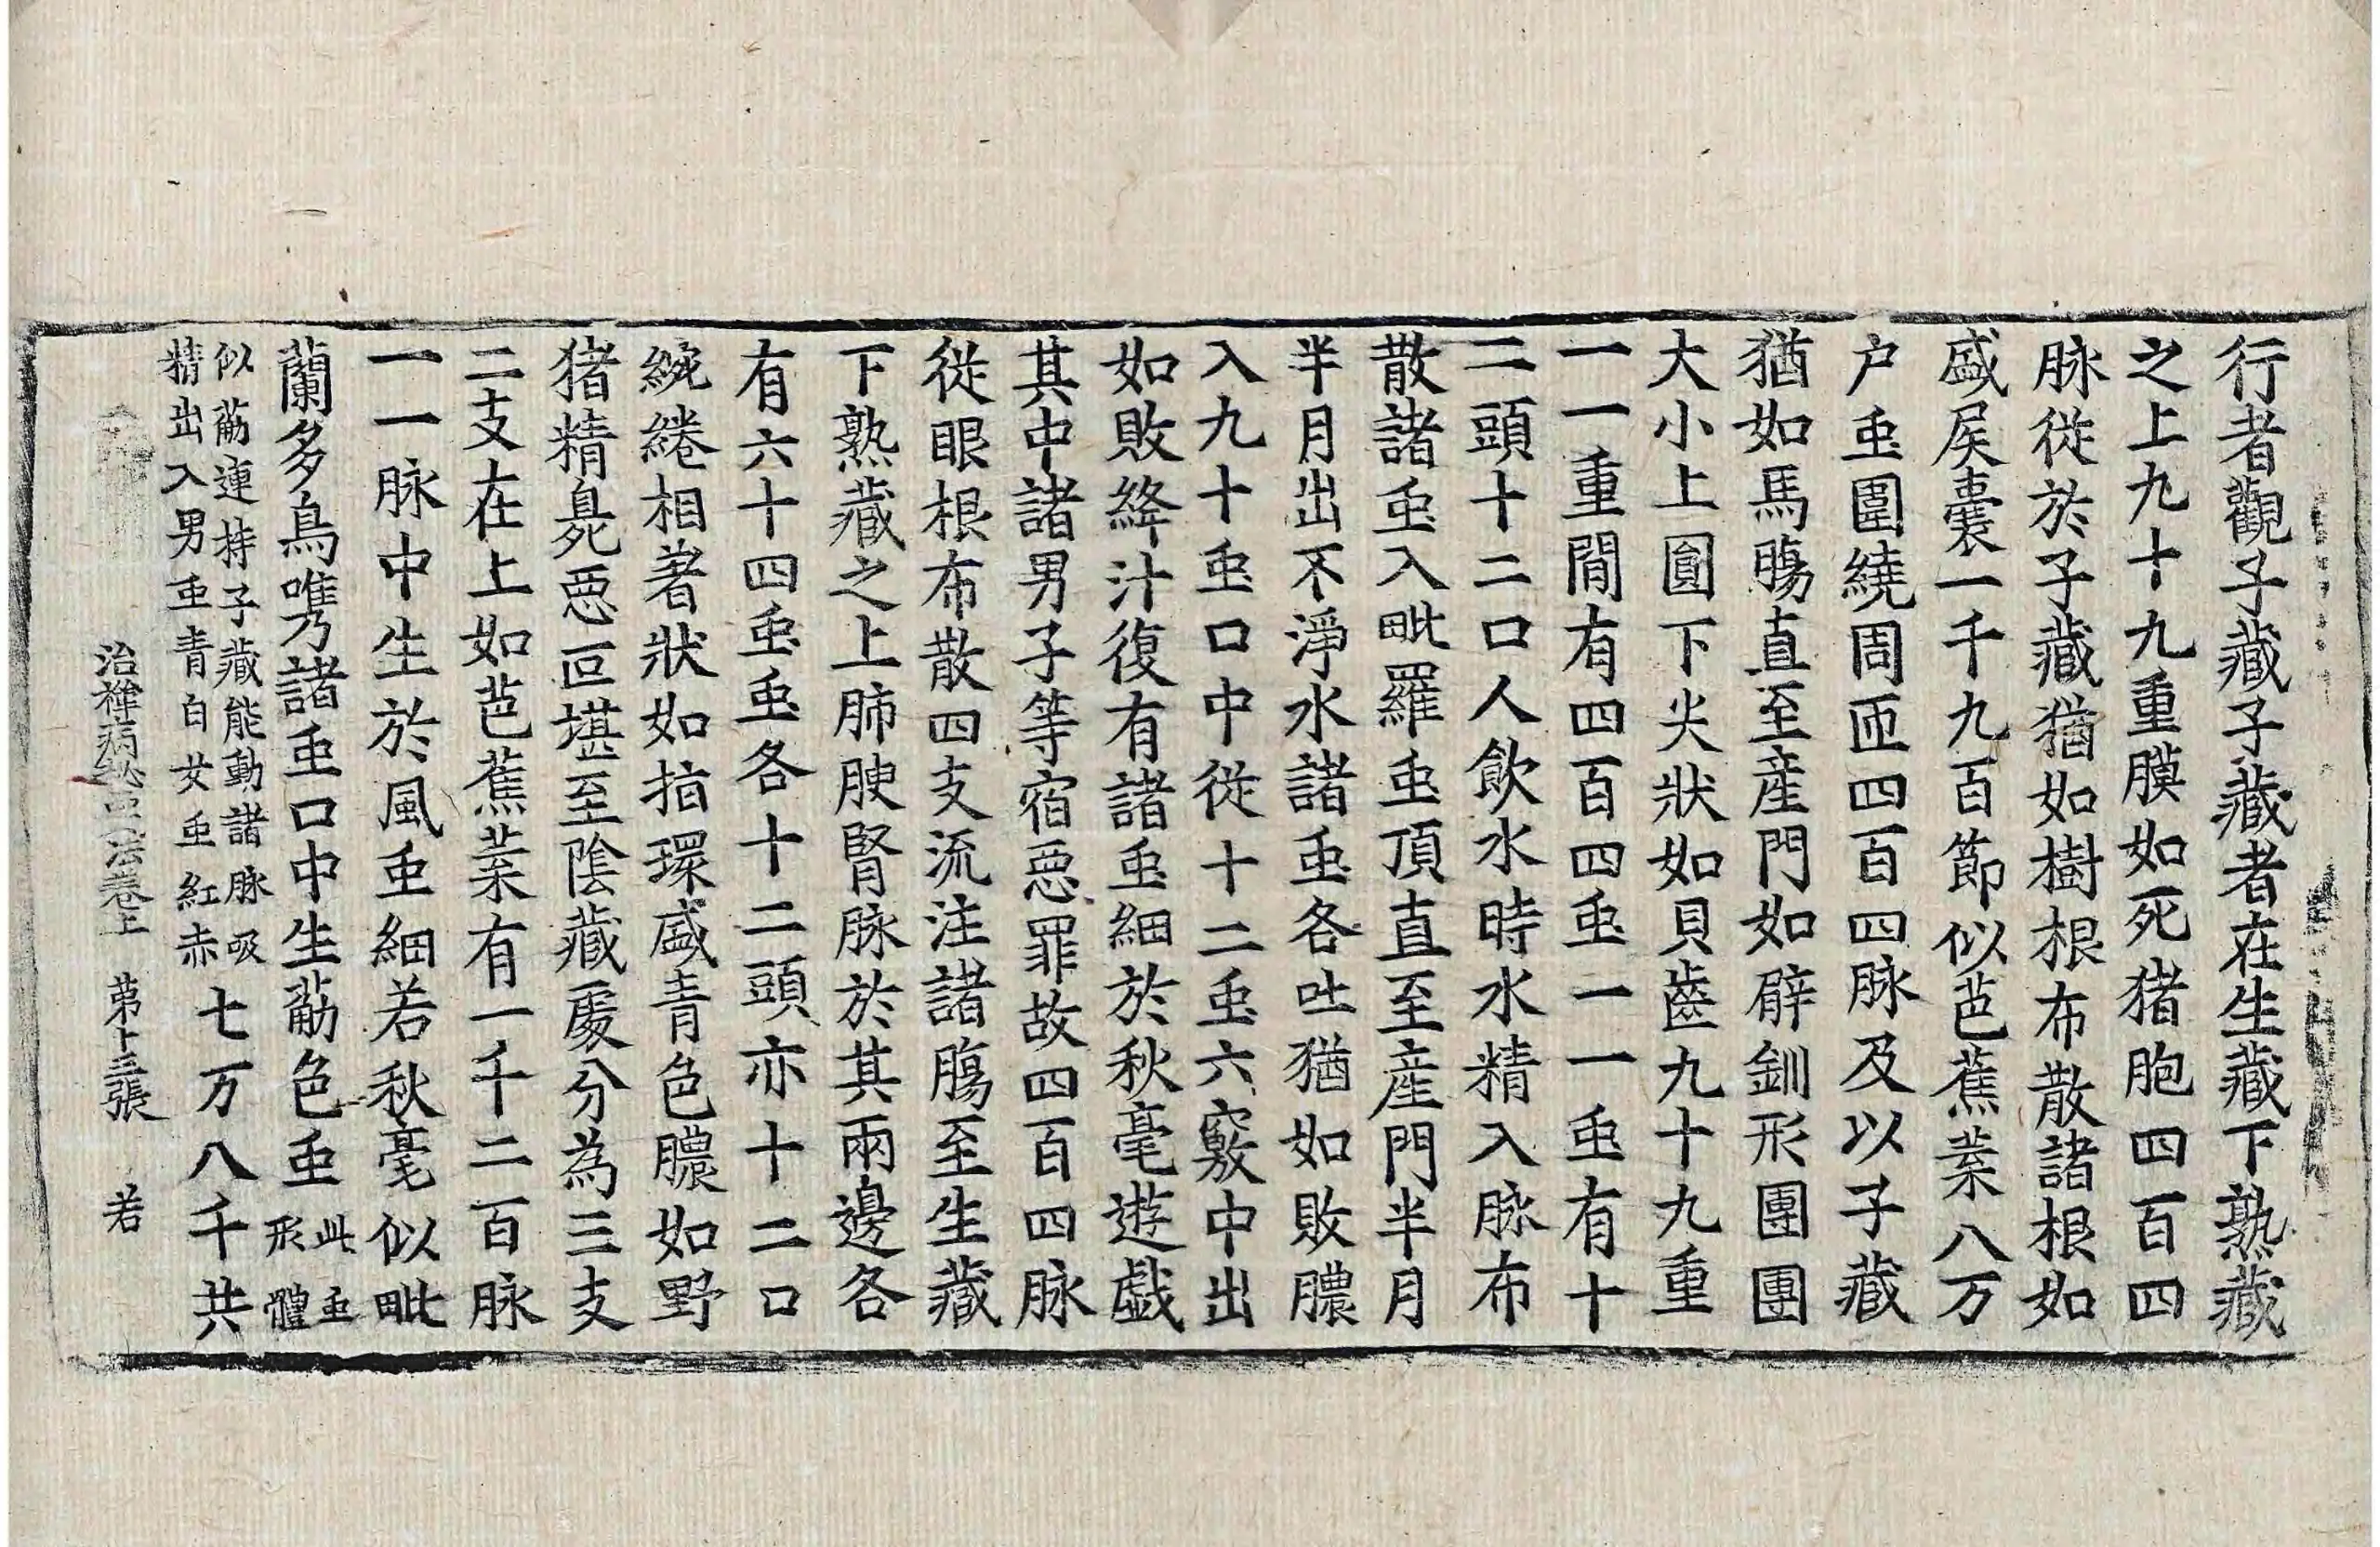 行者觀子藏子藏者在生藏下熟藏
之上九十九重膜如死猪胞四百四
脉從於子藏猶如樹根布散諸根如
盛屎囊一千九百節似芭蕉葉八万
户䖝圍繞周匝四百四脉及以子藏
猶如馬腸直至產門如臂釧形團團
大小上圓下尖狀如貝齒九十九重
一一重間有四百四䖝一一䖝有十
二頭十二口人飲水時水精入脉布
散諸䖝入毗羅䖝頂直至產門半月
半月出不淨水諸䖝各吐猶如敗膿
入九十䖝口中從十二䖝六竅中出
如敗絳汁復有諸䖝細於秋毫遊戲
其中諸男子等宿惡罪故四百四脉
從眼根布散四支流注諸腸至生藏
下熟藏之上肺腴腎脉於其兩邊各
有六十四䖝䖝各十二頭亦十二口
綩綣相著狀如指環盛青色膿如野
猪精臭惡叵堪至陰藏處分為三支
二支在上如芭蕉葉有一千二百脉
一一脉中生於風䖝細若秋毫似毗
蘭多鳥㗛諸䖝口中生葋色䖝此䖝形體
似葋連持子藏能動諸脉吸精出入男䖝青白女䖝紅赤七万八千共
治禪病秘要法卷上 第十三張 若